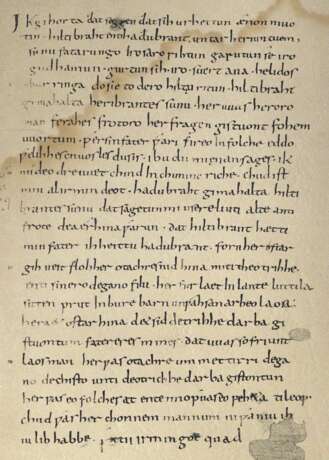 Ik gihorta dat seggen dat sih urhettun ænon muo
tin. hiltibraht enti hadubrant. untar heriun tuem.
sunu fatarungo. iro saro rihtun garutun se iro
gudhamun. gurtun sih. iro. suert ana. helidos
ubar ringa do sie to dero hiltu ritun. hiltibraht
gimahalta heribrantes sunu. her uuas heroro
man ferahes frotoro. her fragen gistuont fohem
uuortum. ƿer sin fater ƿari fireo In folche eddo
ƿelihhes cnuosles du sis. ibu du mi ęnan sages. ik
mi de odre uuet chind In chunincriche. chud ist
min al irmindeot. hadubraht gimahalta hilti
brantes sunu dat sagetun mi usere liuti alte anti
frote dea erhina ƿarun. dat hiltibrant hætti
min fater. ih heittu hadubrant. forn her ostar
gihueit floh her otachres nid hina miti theotrihhe.
enti sinero degano filu. her furlaet In lante luttila
sitten prut In bure barn unƿahsan arbeo laosa.
heraet ostar hina desid detrihhe darba gi
stuontun fatereres mines. dat uuas so friunt
laos man her ƿas otachre ummettirri dega
no dechisto unti deotrichhe darba gistontun
her ƿas eo folches at ente imo ƿuas eo peheta ti leop.
chud ƿas her chonnem mannum ni ƿaniu ih
iu lib habbe. ƿettu irmingot quad